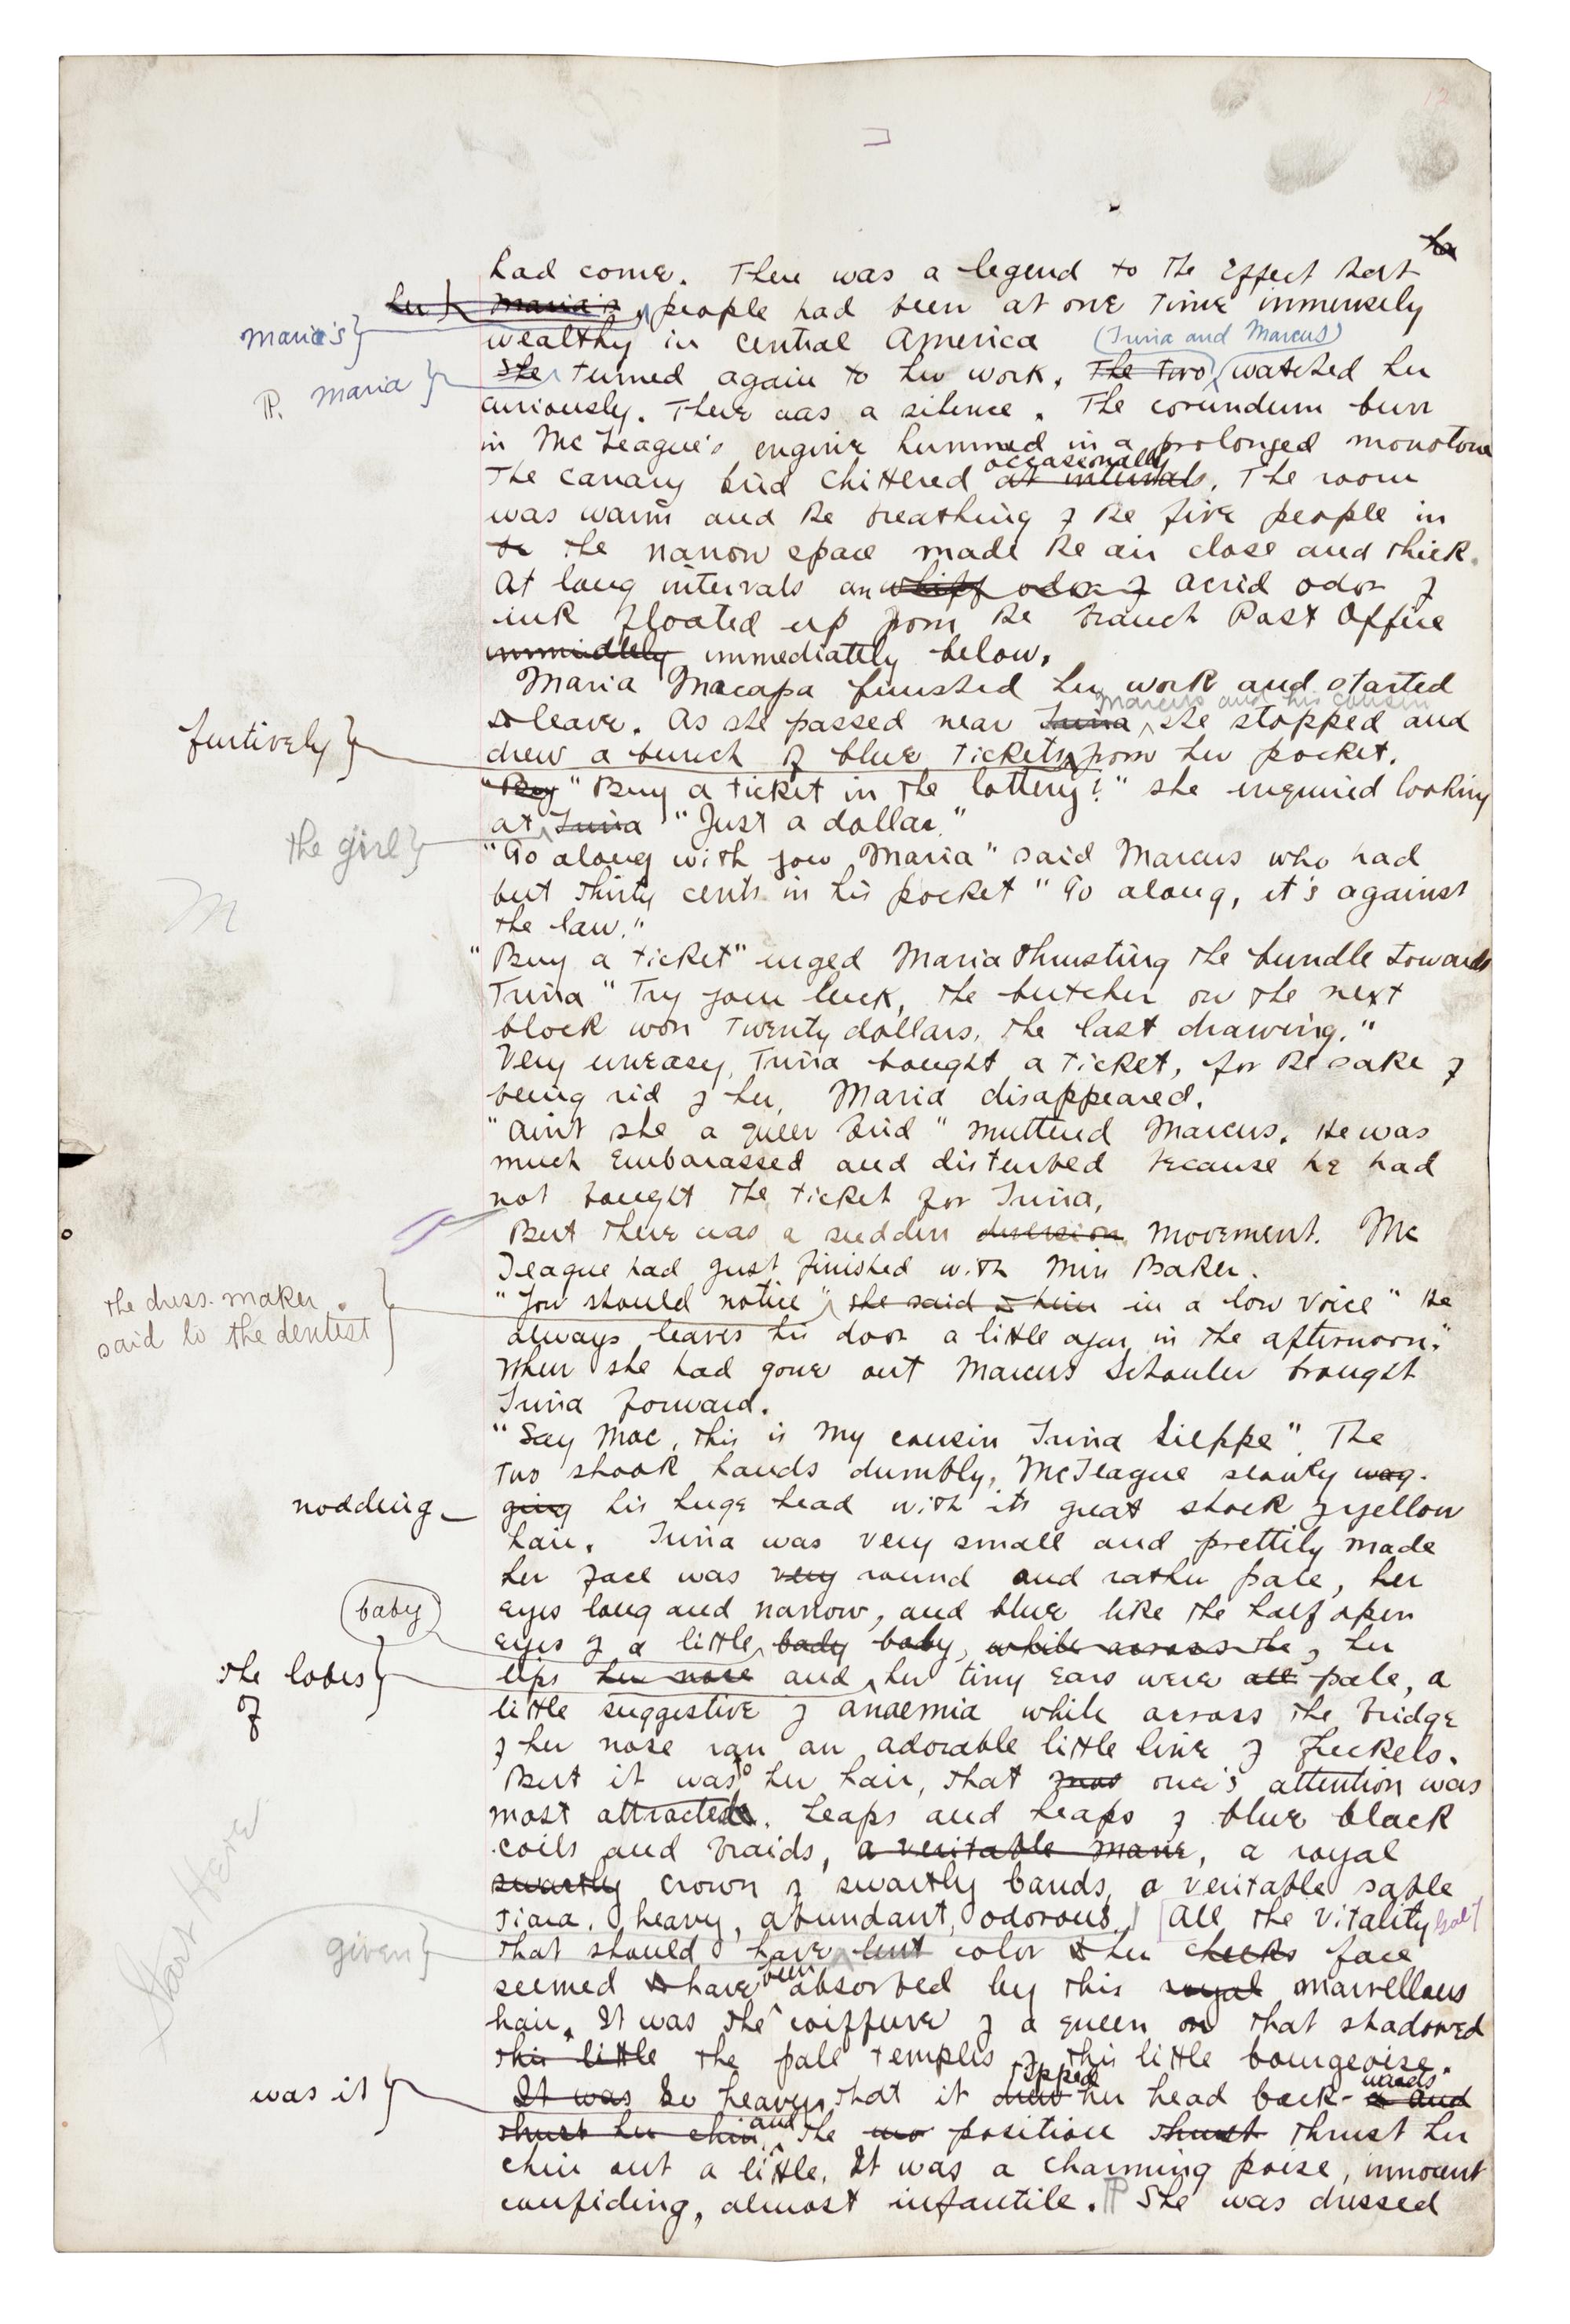 12
had come. There was a legend to the Effect that her
her Maria's people had been at one time immensely
Maria's
wealthy in central America (Trina and Marcus)
P. Maria
She turned again to her work. The two watched her
curiously. There was a silence. The corundum burr
in McTeague's engine hummed in a prolonged monotone
occasionally
The canary bird chittered at intervals. The room
was warm and the breathing of the five people in
the the narrow space made the air close and thick.
At long intervals an whiff odor of acrid odor of
ink floated up from the branch Post Office
immindtely immediately below.
Maria Macapa finished her work and started
Marcus and his cousin
to leave. As she passed near Trina she stopped and
furtively
drew a bunch of blue tickets from her pocket.
"Buy "Buy a ticket in the lottery?" she enquired looking
at Trina "Just a dollar."
the girl
"Go along with you Maria" said Marcus who had
M
but thirty cents in his pocket "Go along, it's against
the law."
"Buy a ticket" urged Maria thrusting the bundle towards
Trina "Try your luck, the butcher on the next
block won twenty dollars, the last drawing."
Very uneasy, Trina bought a ticket, for the sake of
being rid of her. Maria disappeared.
"Aint she a queer bird" muttered Marcus. He was
much Embarassed and disturbed because he had
not bought the ticket for Trina.
But there was a sudden diversion movement. Mc
Teague had just finished with Miss Baker.
the dress-maker
said to the dentist
"You should notice" she said to him in a low voice "He
always leaves his door a little ajar in the afternoon."
When she had gone out Marcus Schouler brought
Trina forward.
"Say Mac, this is my cousin Trina Sieppe". The
two shook hands dumbly, McTeague slowly wag-
nodding
ging his huge head with its great shock of yellow
hair. Trina was very small and prettily made
her face was very round and rather pale, her
baby
eyes long and narrow, and blue like the half open
eyes of a little bady baby, while across the, her
the lobes
of
lips her nose and her tiny ears were all pale, a
little suggestive of anaemia while across the bridge
of her nose ran an adorable little line of freckels.
But it was to her hair, that mos one's attention was
most attracted. Heaps and heaps of blue black
coils and braids, a veritable mane, a royal
swartly crown of swartly bands, a veritable sable
tiara, heavy, abundant, odorous. [All the vitality
Start Here
given
that should have lent color to her cheeks face
been
seemed to have absorbed by this royal marvellous
hair. It was the coiffure of a queen on that shadowed
this little the pale temples of this little bourgeoise.
was it
tipped
wards
It was So heavy that it drew her head back- and
and
thrust her chin, the position thrust thrust her
chin out a little. It was a charming poise, innocent
confiding, almost infantile. P She was dressed